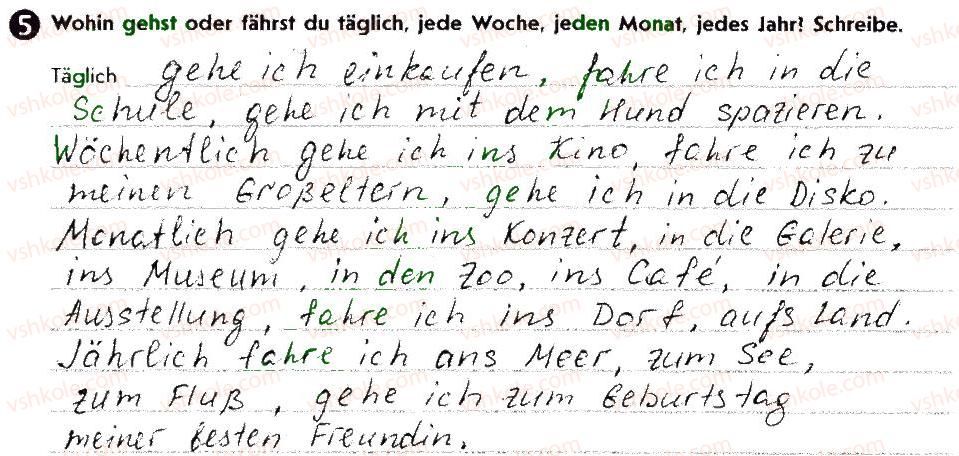 5 Wohin gehst oder fährst du täglich, jede Woche, jeden Monat, jedes Jahr? Schreibe.
Täglich gehe ich einkaufen, fahre ich in die
Schule, gehe ich mit dem Hund spazieren.
Wöchentlich gehe ich ins Kino, fahre ich zu
meinen Großeltern, gehe ich in die Disko.
Monatlich gehe ich ins Konzert, in die Galerie,
ins Museum, in den Zoo, ins Café, in die
Ausstellung, fahre ich ins Dorf, aufs Land.
Jährlich fahre ich ans Meer, zum See,
zum Fluß, gehe ich zum Geburtstag
meiner besten Freundin.
vshkole.com